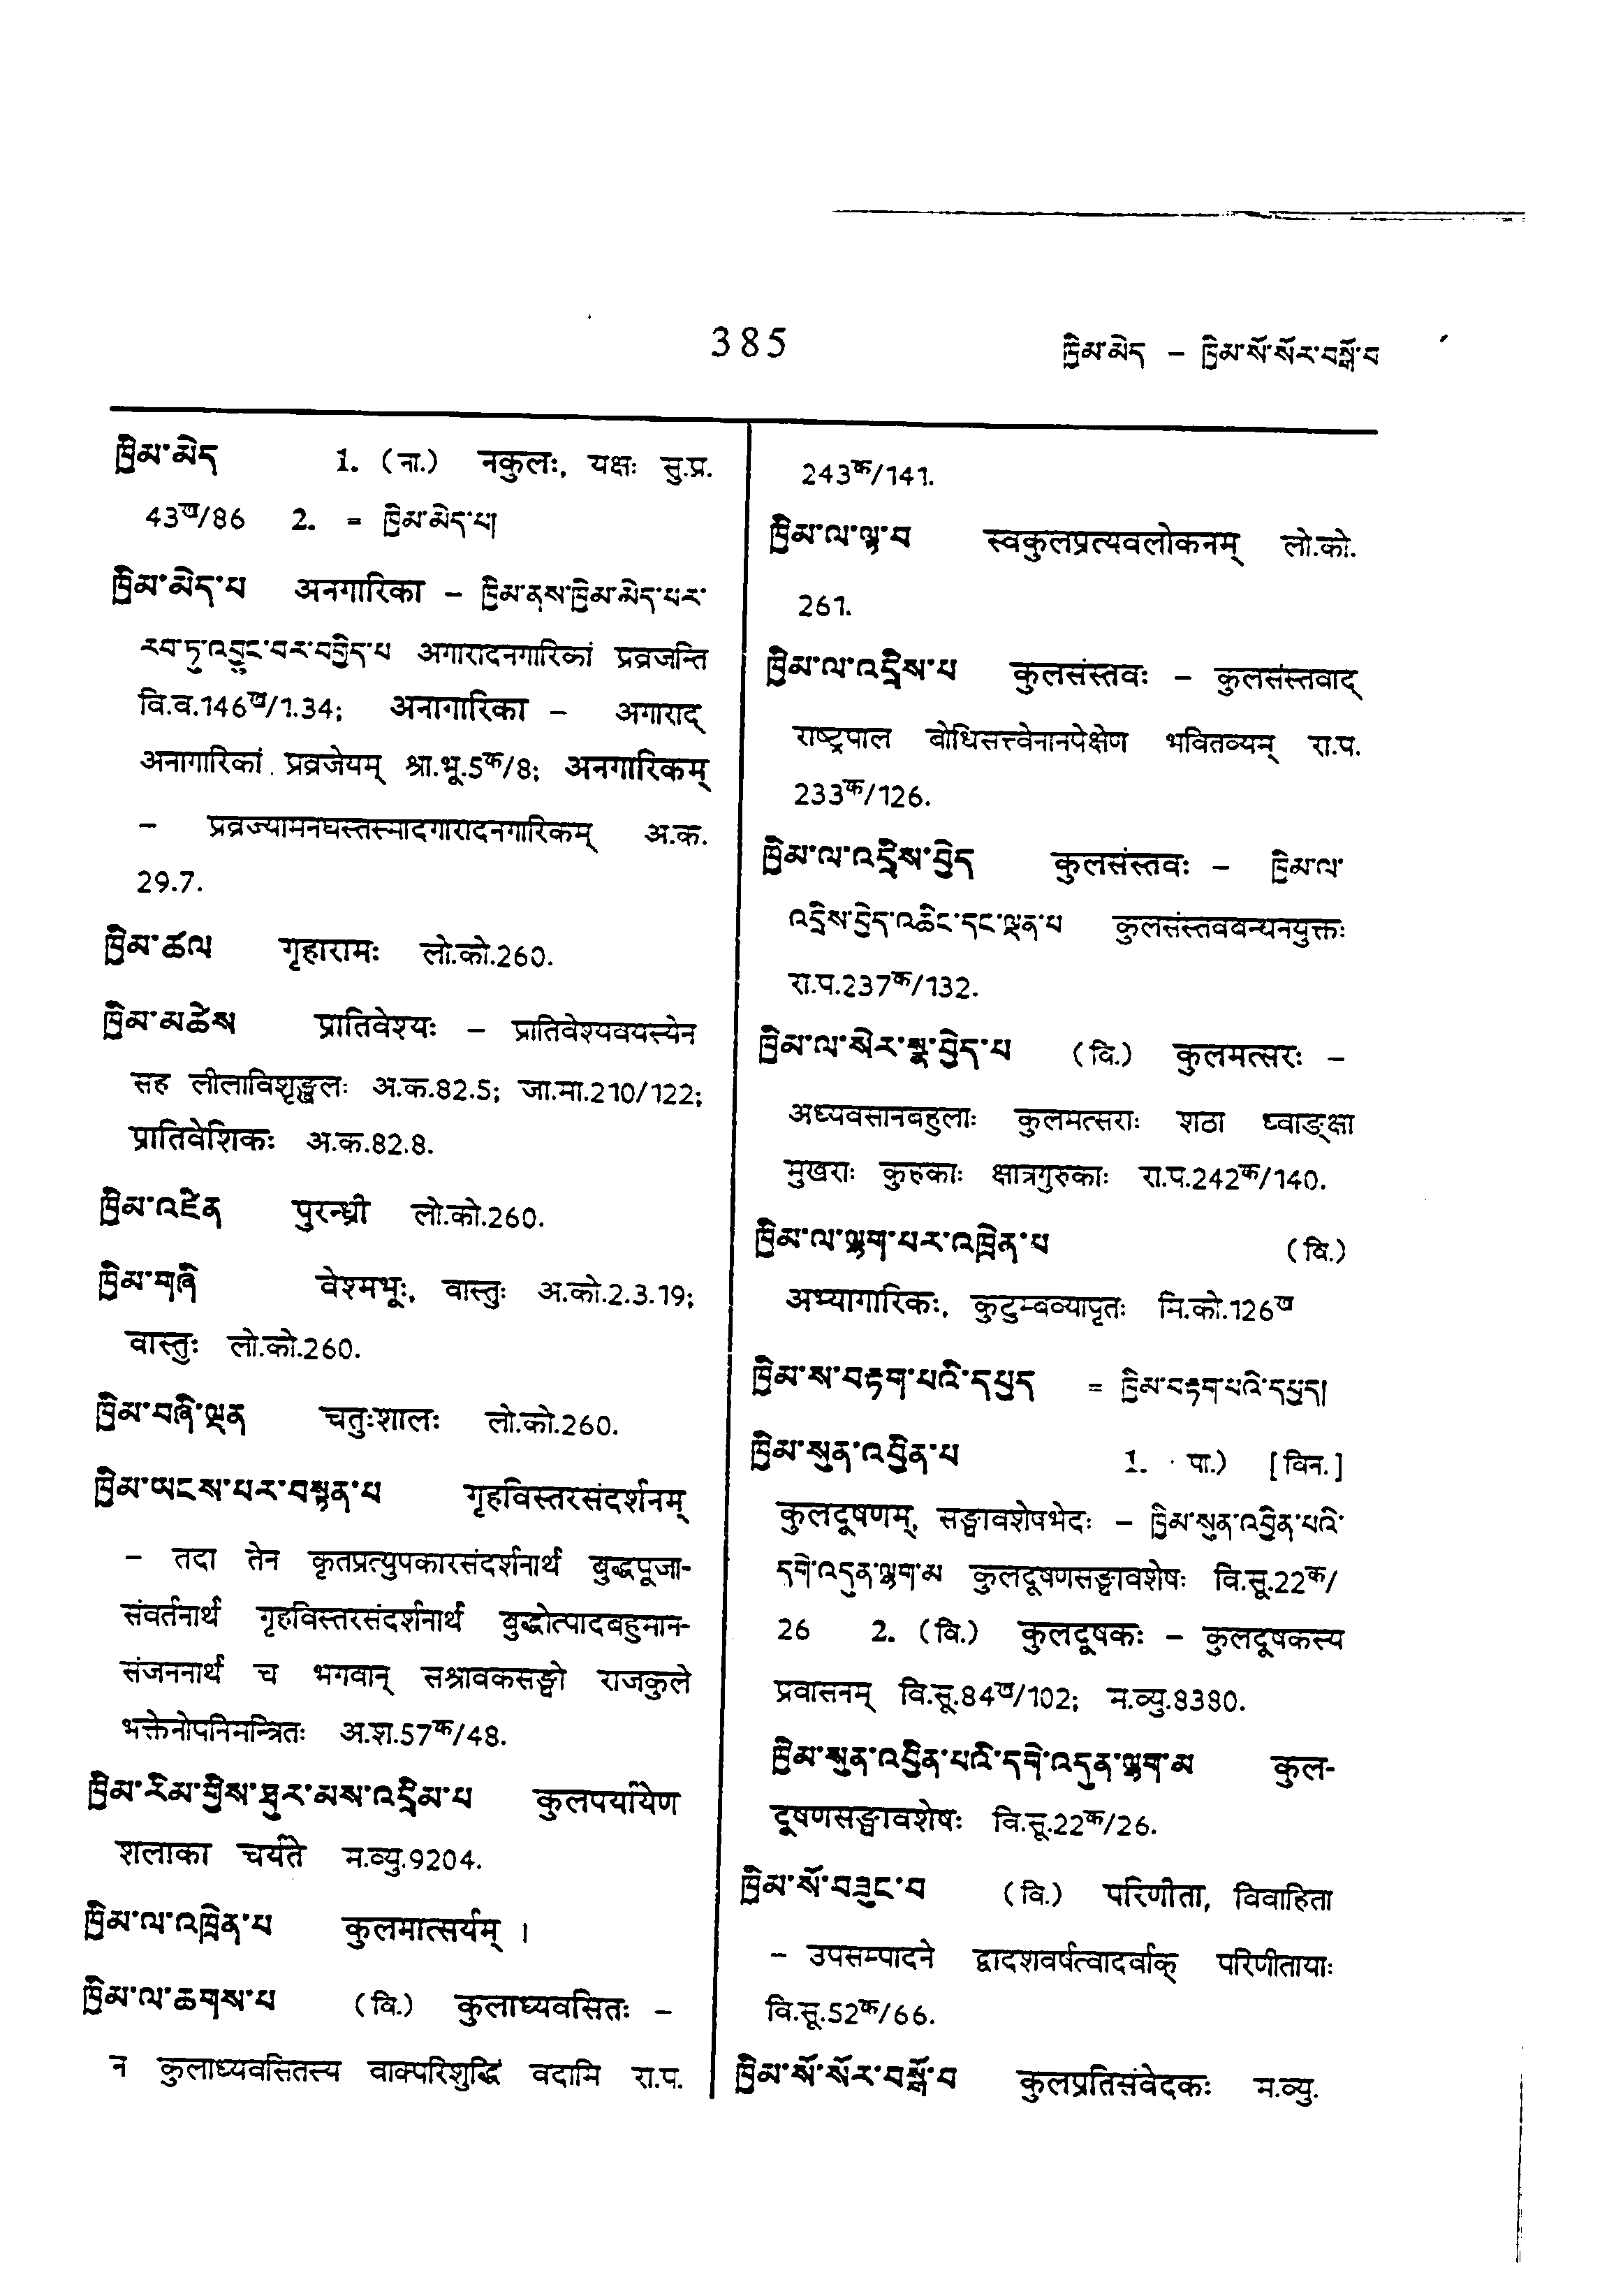 385
ཁྱིམ་མེད – ཁྱིམ་སོ་སོར་བསྒོ་བ
ཁྱིམ་མེད 1. (ना.) नकुलः, यक्षः सु.प्र.
43ख/86 2. = ཁྱིམ་མེད་པ།
ཁྱིམ་མེད་པ अनगारिका – ཁྱིམ་ནས་ཁྱིམ་མེད་པར་
རབ་ཏུ་འབྱུང་བར་བགྱིད་པ अगारादनगारिकां प्रव्रजन्ति
वि.व.146ख/1.34; अनागारिका – अगाराद्
अनागारिकां प्रव्रजेयम् श्रा.भू.5क/8; अनगारिकम्
– प्रव्रज्यामनघस्तस्मादगारादनगारिकम् अ.क.
29.7.
ཁྱིམ་ཚལ गृहारामः लो.को.260.
ཁྱིམ་མཚེས प्रातिवेश्यः – प्रातिवेश्यवयस्येन
सह लीलाविशृङ्खलः अ.क.82.5; जा.मा.210/122;
प्रातिवेशिकः अ.क.82.8.
ཁྱིམ་འཛིན पुरन्ध्री लो.को.260.
ཁྱིམ་གཞི वेश्मभूः, वास्तुः अ.को.2.3.19;
वास्तुः लो.को.260.
ཁྱིམ་བཞི་ལྡན चतुःशालः लो.को.260.
ཁྱིམ་ཡངས་པར་བསྟན་པ गृहविस्तरसंदर्शनम्
– तदा तेन कृतप्रत्युपकारसंदर्शनार्थं बुद्धपूजा-
संवर्तनार्थं गृहविस्तरसंदर्शनार्थं बुद्धोत्पादबहुमान-
संजननार्थं च भगवान् सश्रावकसङ्घो राजकुले
भक्तेनोपनिमन्त्रितः अ.श.57क/48.
ཁྱིམ་རིམ་གྱིས་ཐུར་མས་འདྲིམ་པ कुलपर्यायेण
शलाका चर्यते म.व्यु.9204.
ཁྱིམ་ལ་འཁྲེན་པ कुलमात्सर्यम् ।
ཁྱིམ་ལ་ཆགས་པ (वि.) कुलाध्यवसितः –
न कुलाध्यवसितस्य वाक्परिशुद्धिं वदामि रा.प.
243क/141.
ཁྱིམ་ལ་ལྟ་བ स्वकुलप्रत्यवलोकनम् लो.को.
261.
ཁྱིམ་ལ་འདྲིས་པ कुलसंस्तवः – कुलसंस्तवाद्
राष्ट्रपाल बोधिसत्त्वेनानपेक्षेण भवितव्यम् रा.प.
233क/126.
ཁྱིམ་ལ་འདྲིས་བྱེད कुलसंस्तवः – ཁྱིམ་ལ་
འདྲིས་བྱེད་འཆིང་དང་ལྡན་པ कुलसंस्तवबन्धनयुक्तः
रा.प.237क/132.
ཁྱིམ་ལ་སེར་སྣ་བྱེད་པ (वि.) कुलमत्सरः –
अध्यवसानबहुलाः कुलमत्सराः शठा ध्वाङ्क्षा
मुखराः कुहकाः क्षात्रगुरुकाः रा.प.242क/140.
ཁྱིམ་ལ་ལྷག་པར་འཁྲེན་པ (वि.)
अभ्यागारिकः, कुटुम्बव्यापृतः मि.को.126ख
ཁྱིམ་ས་བརྟག་པའི་དཔྱད = ཁྱིམ་བརྟག་པའི་དཔྱད།
ཁྱིམ་སུན་འབྱིན་པ 1. पा.) [विन.]
कुलदूषणम्, सङ्घावशेषभेदः – ཁྱིམ་སུན་འབྱིན་པའི་
དགེ་འདུན་ལྷག་མ कुलदूषणसङ्घावशेषः वि.सू.22क/
26 2. (वि.) कुलदूषकः – कुलदूषकस्य
प्रवासनम् वि.सू.84ख/102; म.व्यु.8380.
ཁྱིམ་སུན་འབྱིན་པའི་དགེ་འདུན་ལྷག་མ कुल-
दूषणसङ्घावशेषः वि.सू.22क/26.
ཁྱིམ་སོ་བཟུང་བ (वि.) परिणीता, विवाहिता
– उपसम्पादने द्वादशवर्षत्वादर्वाक् परिणीतायाः
वि.सू.52क/66.
ཁྱིམ་སོ་སོར་བསྒོ་བ कुलप्रतिसंवेदकः म.व्यु.